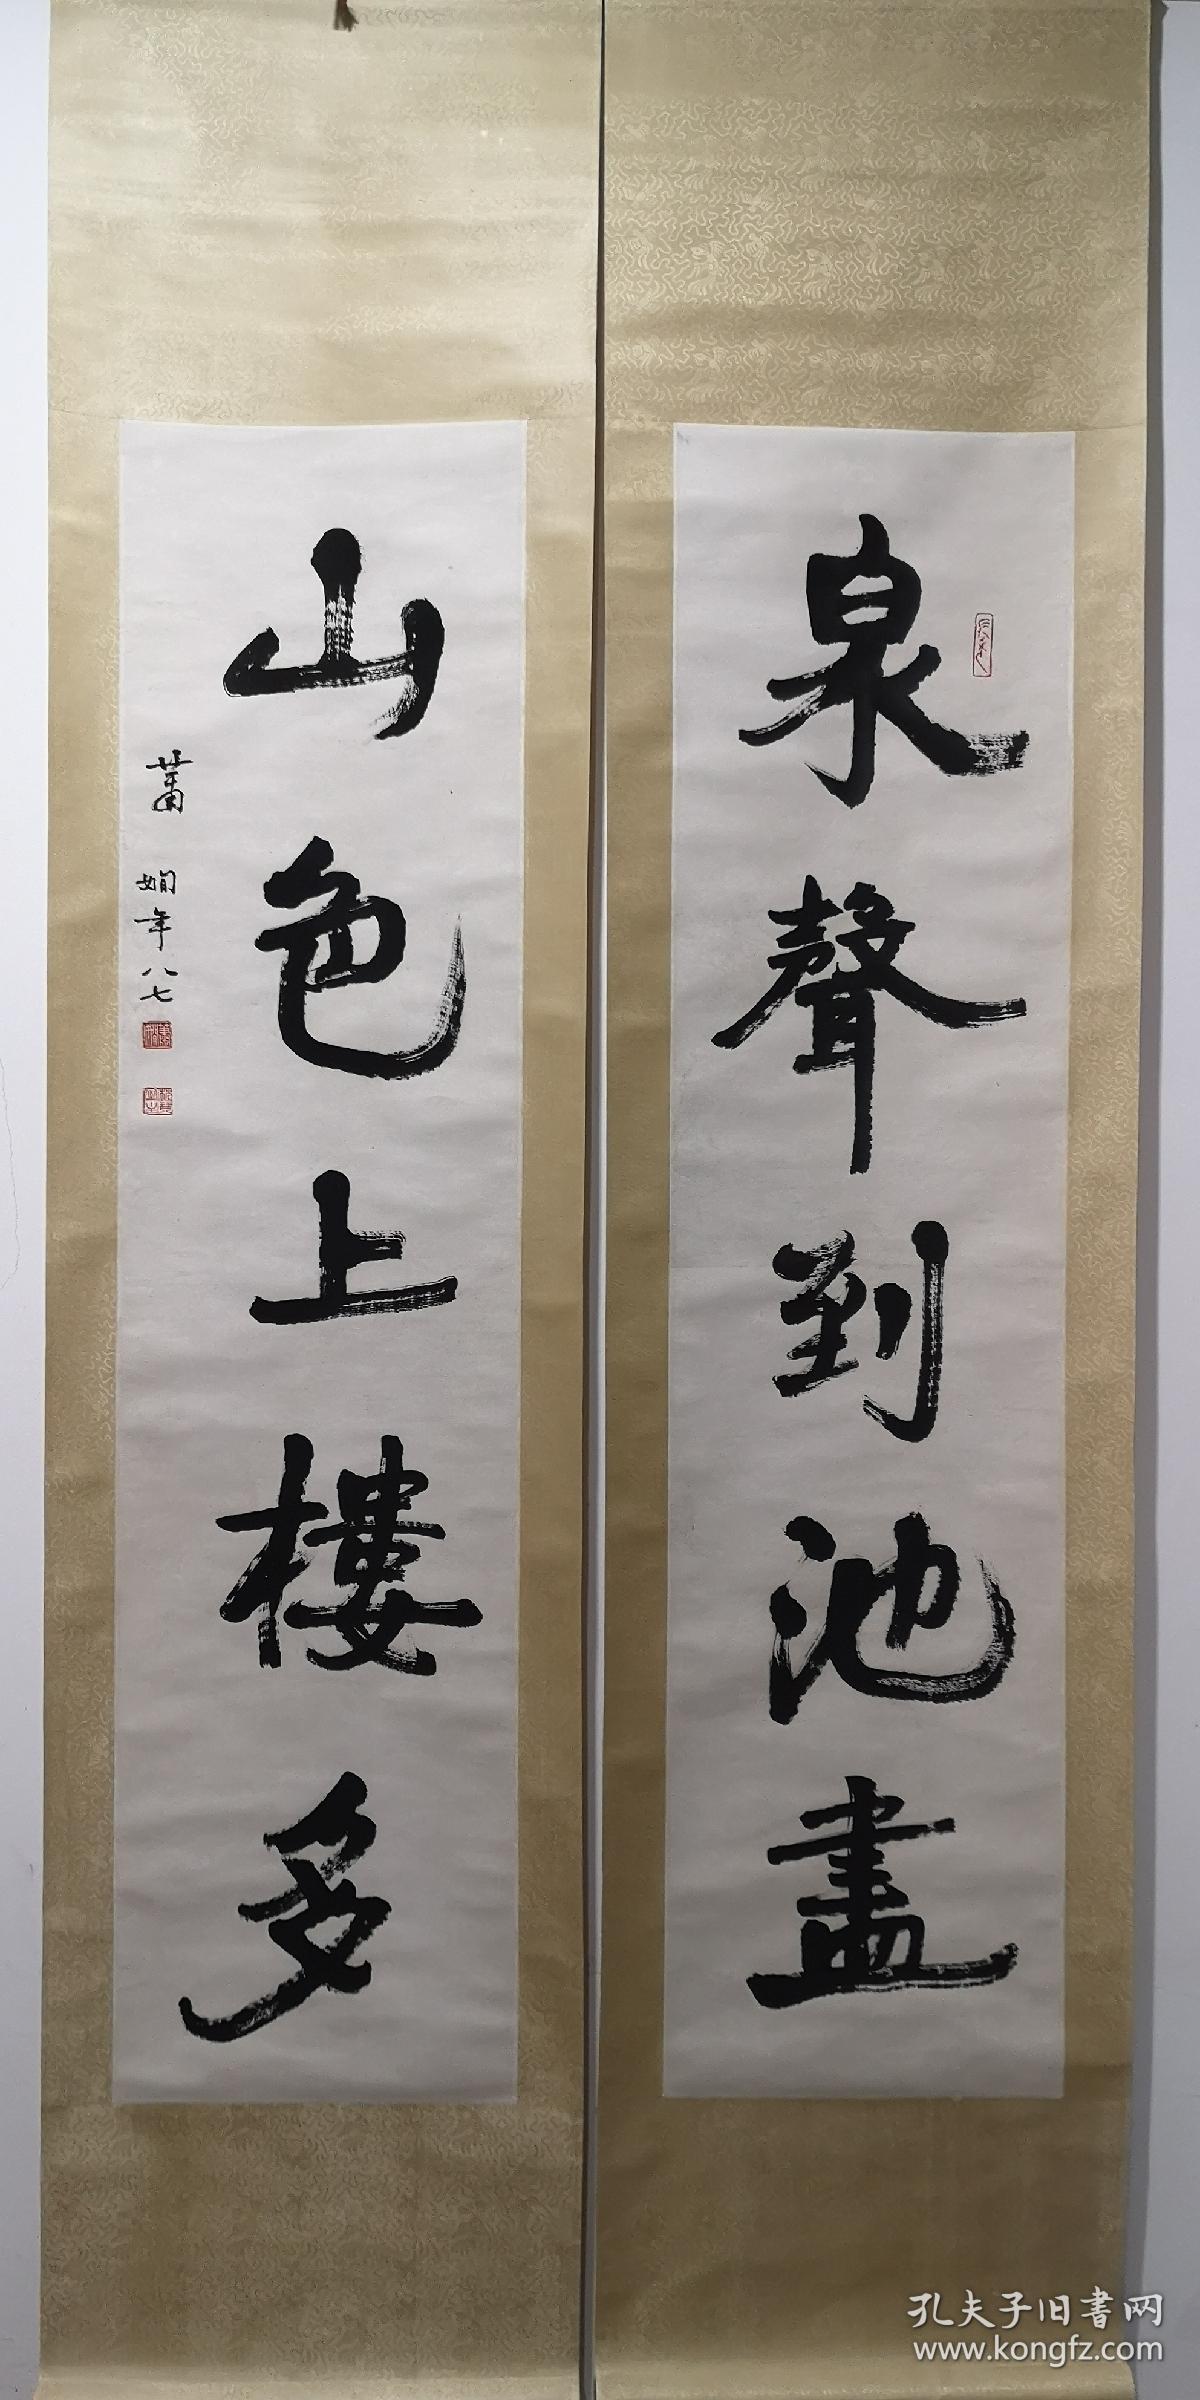 泉聲到池盡
山色上樓多
蕭嫺年八七
孔夫子旧書网
www.kongfz.com